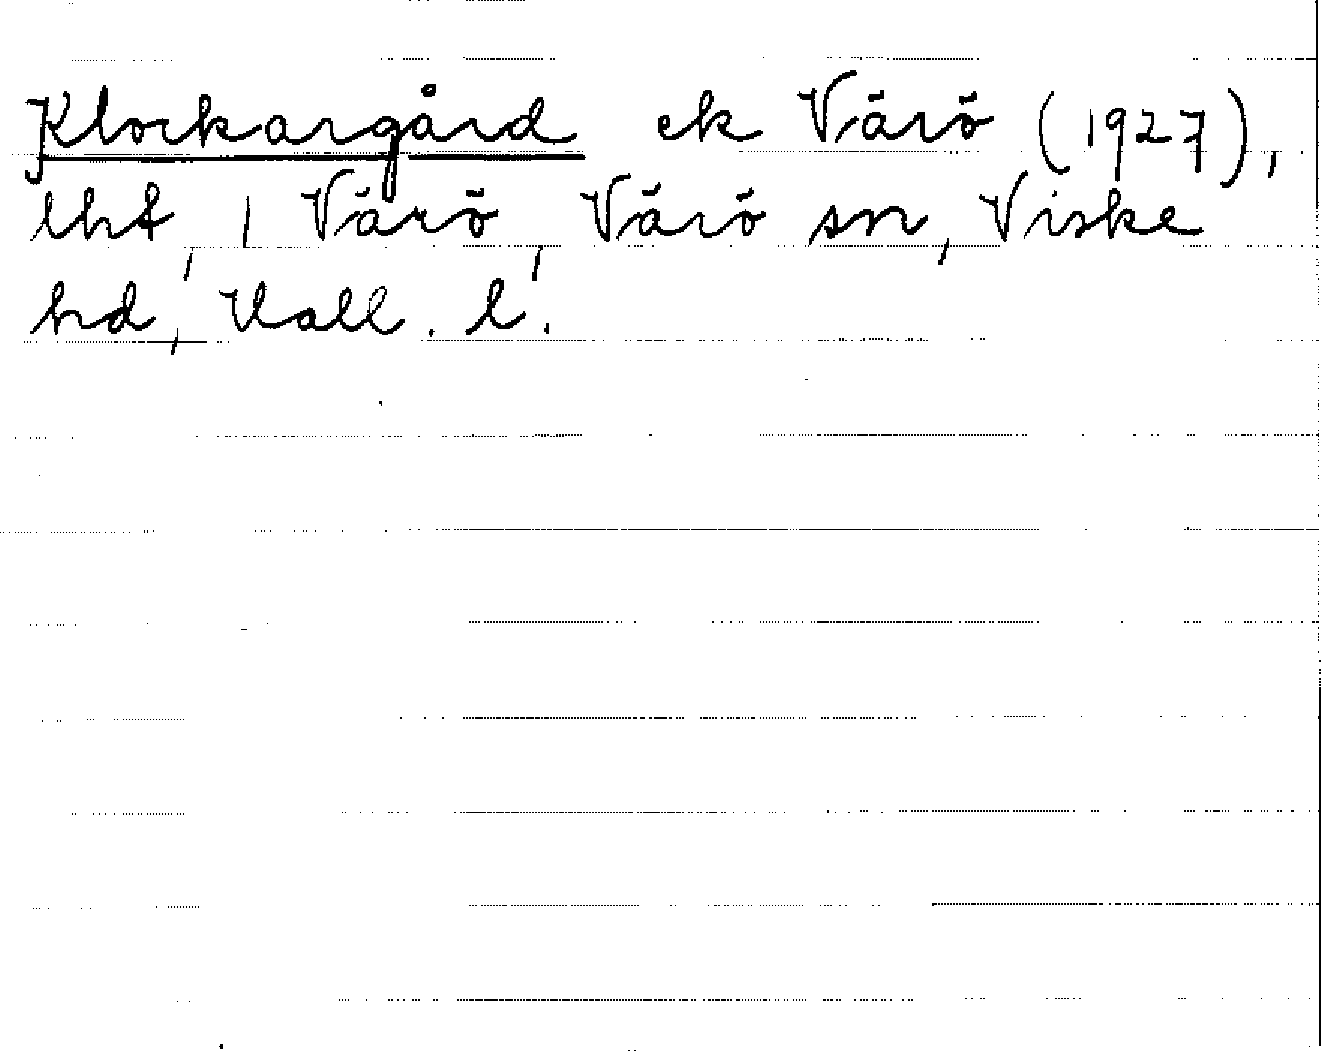 Klockargård ek Värö (1927),
lht, 1 Värö, Värö sn, Viske
hd, Hall. l.